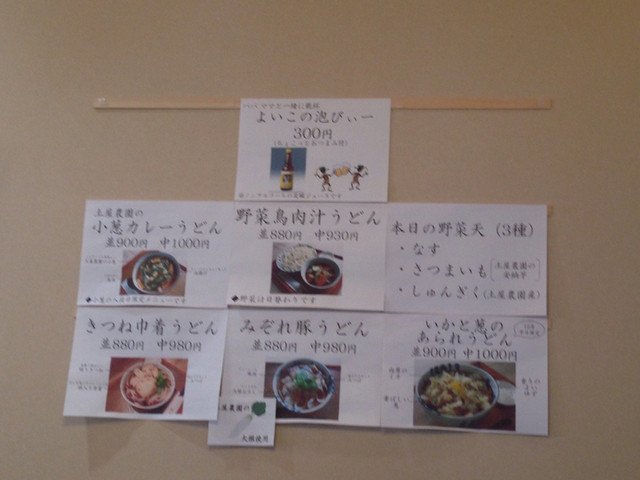 パパ ママと一緒に乾杯
よいこの泡びぃー
300円
(ちょこっとおつまみ付)
土屋農園の
小葱カレーうどん
並900円 中1000円
野菜鳥肉汁うどん
並880円 中930円
◆野菜は日替わりです
本日の野菜天（3種）
・なす
・さつまいも(土屋農園の安納芋)
・しゅんぎく(土屋農園産)
きつね巾着うどん
並880円 中980円
みぞれ豚うどん
並880円 中980円
土屋農園の
大根使用
いかと葱の
あられうどん
並900円 中1000円